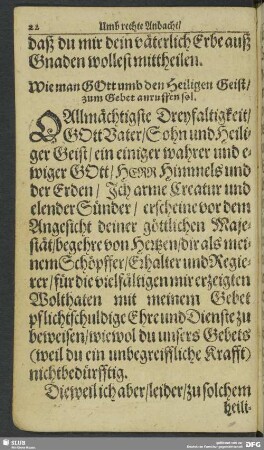 22 Umb rechte Andacht/
daß du mir dein väterlich Erbe auß
Gnaden wollest mittheilen.
Wie man GOtt umb den Heiligen Geist/
zum Gebet anruffen sol.
O Allmächtigste Dreyfaltigkeit/
GOtt Vater/ Sohn und Heili-
ger Geist/ ein einiger wahrer und e-
wiger GOtt/ HERR Himmels und
der Erden/ Ich arme Creatur und
elender Sünder/ erscheine vor dem
Angesicht deiner göttlichen Maje-
stät/ begehre von Hertzen/ dir als mei-
nem Schöpffer/ Erhalter und Regie-
rer/ für die vielfältigen mir erzeigten
Wolthaten mit meinem Gebet
pflichtschuldige Ehre und Dienste zu
beweisen/ wiewol du unsers Gebets
(weil du ein unbegreiffliche Krafft)
nicht bedürfftig.
Dieweil ich aber/ leider/ zu solchem
heili-
SLUB
DFG